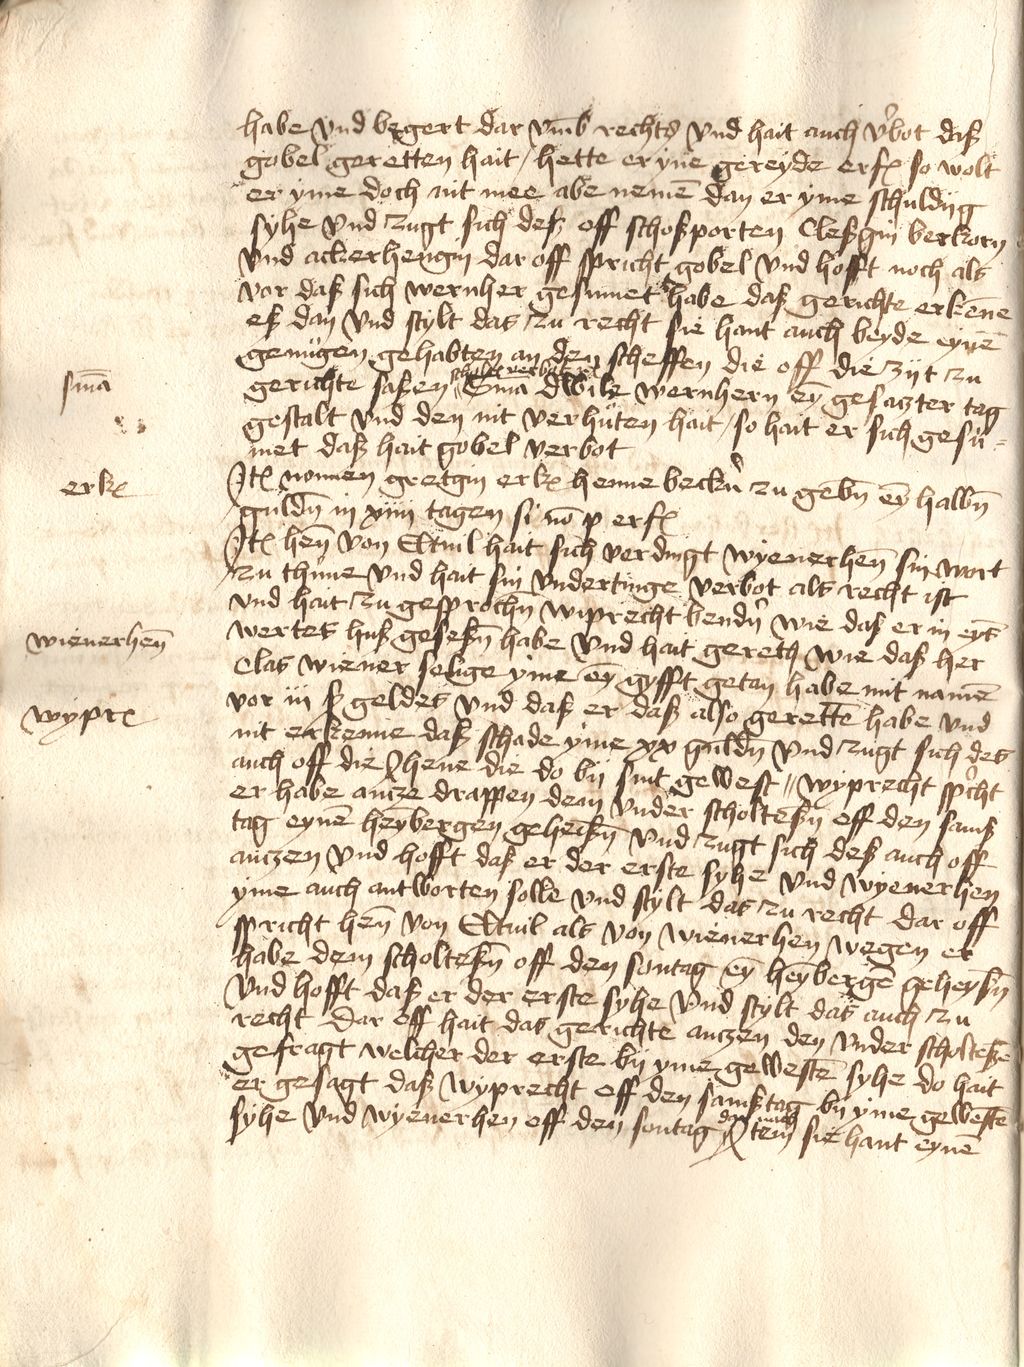 habe vnd begert dar vm̄b rechts vnd hait auch v'bot daß
gobel geretten hait / hette er yne gereyde erf so wolt
er yme doch nit mee abe nemē dan er yme schuldig
syhe vnd zugt sich deß off schoßporten Cleßgin berkorn
vnd ackerhengin dar off spricht gobel vnd hofft noch als
vor daß sich wernher gesumet habe daß gerichte erkēne
eß dan vnd stylt das zu recht sie hant auch beyde eynē
genugen gehabten an den scheffen die off die zijt zu
smā
gerichte saßen Sma dwile wernhern eȳ gesatzter tag
gestalt vnd den nit verhuten hait / so hait er sich gesu=
met daß hait gobel verbot
erk
Jt nonnen gretgin erk henne beck'n zu gebn̄ eȳ halbn̄
guldn̄ in xiiii tagen si nō p erf
Jt hen̄ von Eltuil hait sich verdingt wyenerhen̄ sin wort
zu thune vnd hait sin vndertinge verbot als recht ist
vnd hait zu gesprochn̄ wiprecht bend' wie daß er in eyns
wienerhen̄
wertes huß geseßn̄ habe vnd hait gereth wie daß her
Clas wiener selige yme eȳ gyfft getan habe mit namē
wypr
vor iii ß geldes vnd daß er daß also gerettē habe vnd
nit erkenne daß schade yme xx guldn̄ vnd zugt sich des
auch off die Jhene die do bij sint gewest // wyprecht sp'cht
er habe antze drappen dem vnder scholteßn̄ off den samß
tag eynē heybergen geheißn̄ vnd zugt sich deß auch off
antzen vnd hofft daß er der erste syhe vnd wyenerhen
yme auch antworten solle vnd stylt das zu recht dar off
spricht hen̄ von Eltuil als von wienerhen wegen er
habe dem scholteßn̄ off den sontag eȳ heybergē geheyßn̄
vnd hofft daß er der erste syhe vnd stylt das auch zu
recht dar off hait das gerichte antzen den vnder scholteßē
gefragt welcher der erste bij yme gewestē syhe do hait
er gesagt daß wyprecht off den samßtag bij yme gewestē
syhe vnd wyenerhen off den sontag dar nach sie hant eynē